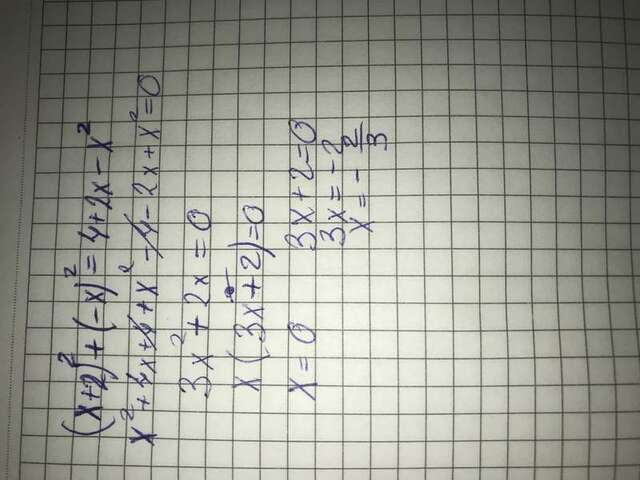 (x+2)² + (-x)² = 4+2x-x²
x² + 4x + 4 + x² - 4 - 2x + x² = 0
3x² + 2x = 0
x(3x+2)=0
x = 0 3x+2=0
3x = -2
x = - 2/3